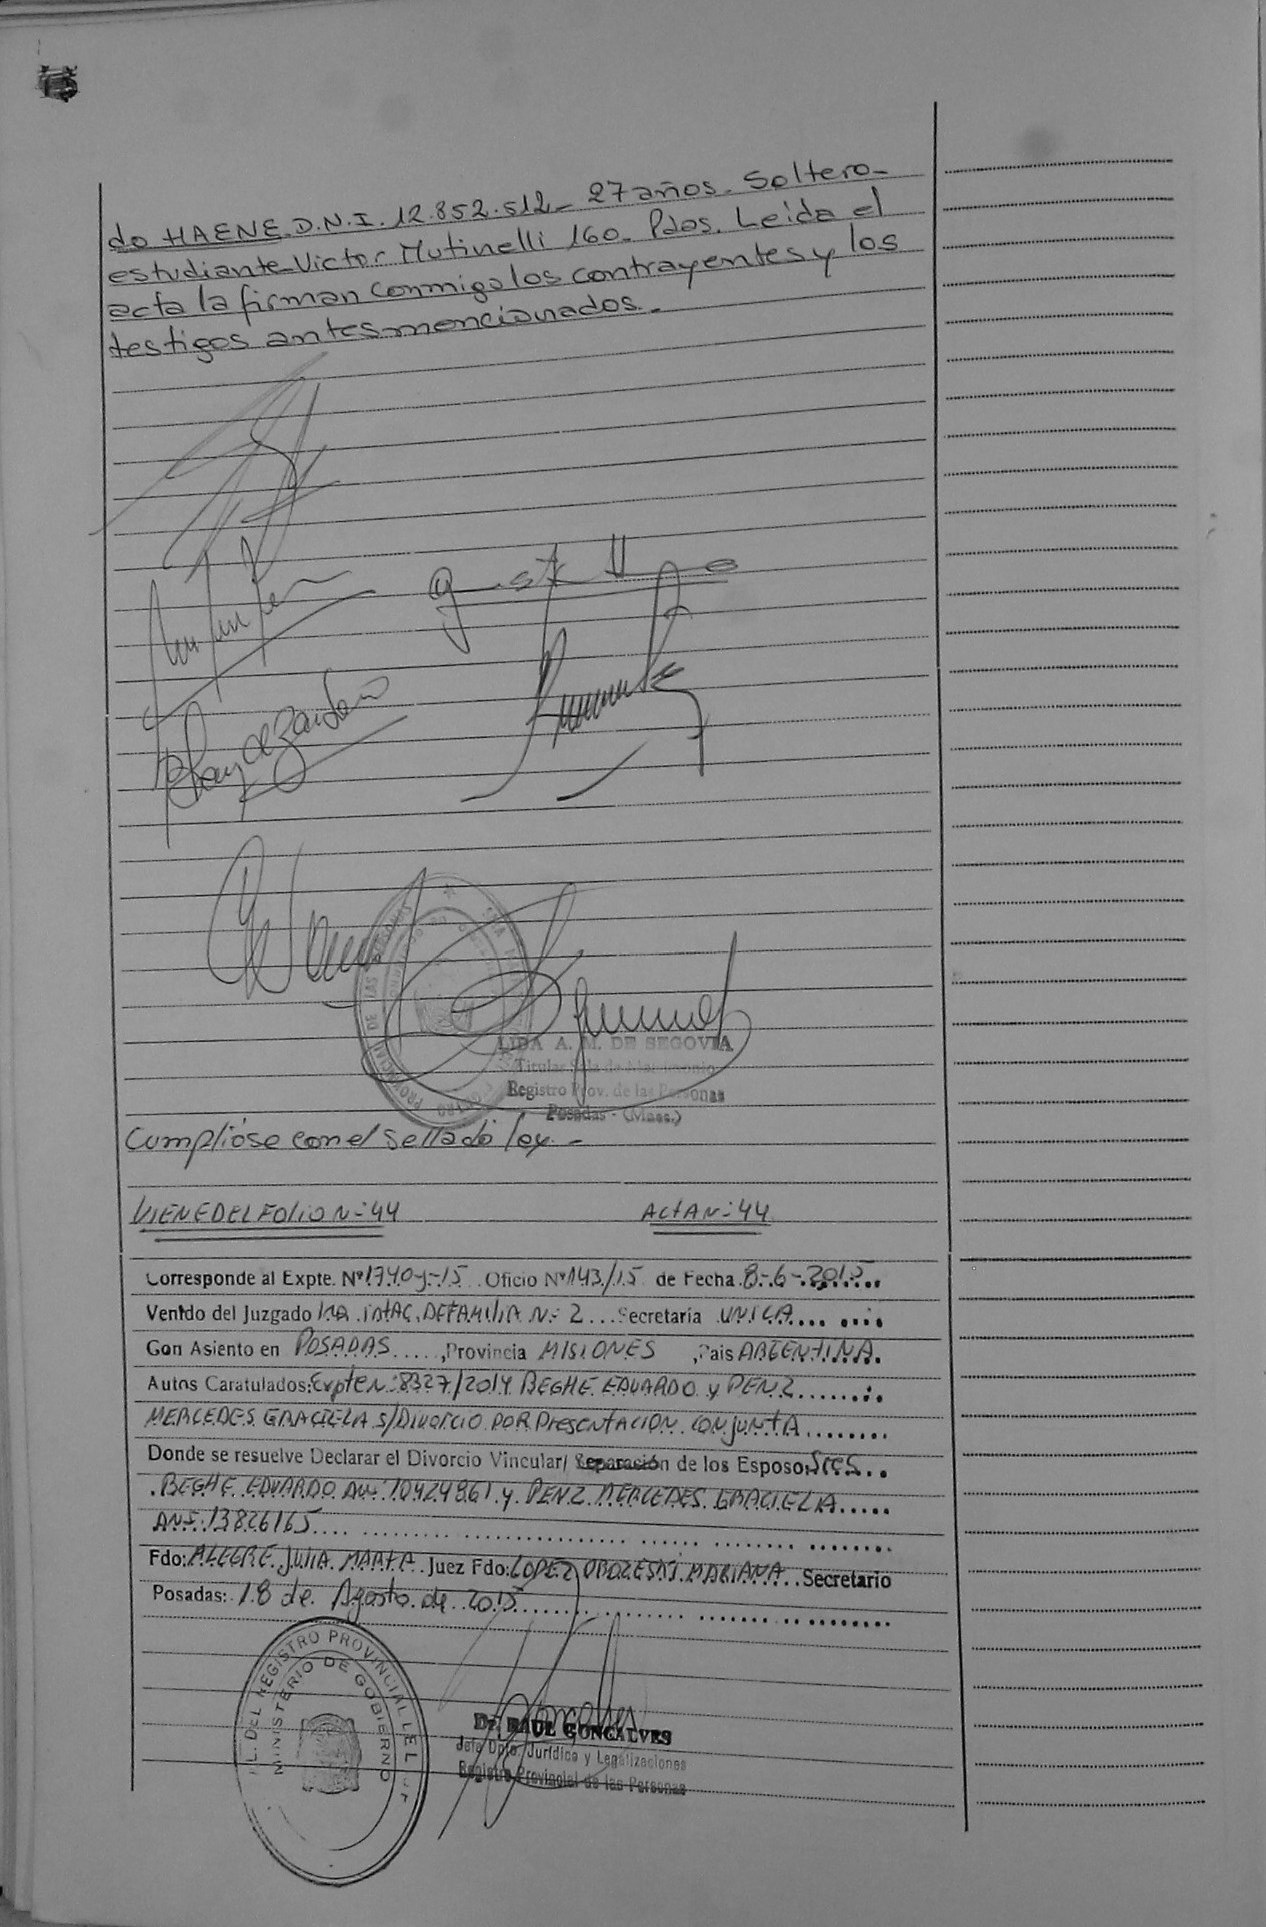 do HAENE. D.N.I. 12.852.512_ 27 años. Soltero_
estudiante_Victor Mutinelli 160_ Pdas. Leida el
acta la firman conmigo los contrayentes y los
testigos antes mencionados._
LIDA A. M. DE SEGOVIA
Titular Sala de Matrimonio
Registro Prov. de las Personas
Posadas - (Mnes.)
Cumplióse con el sellado ley. -
VIENE DEL FOLIO N-:44 ACTA N-:44
Corresponde al Expte. Nº1740-y-15 Oficio Nº143/15 de Fecha 8-6-2015
Venido del Juzgado 1ra. intAC. DE FAMILIA N-: 2 ... Secretaría UNICA
Con Asiento en POSADAS ....., Provincia MISIONES , Pais ARGENTINA.
Autos Caratulados: Expte N-:8327/2014 BEGHE EDUARDO y PENZ
MERCEDES GRACIELA s/DIVORCIO POR PresentACION CONJUNTA
Donde se resuelve Declarar el Divorcio Vincular/ Separación de los Esposos Sres.
BEGHE EDUARDO DNI: 10424861 y PENZ MERCEDES GRACIELA
DNI: 13826165
Fdo: ALEGRE JULIA MARTA Juez Fdo: LOPEZ MARIANA Secretario
Posadas: 18 de Agosto de 2015
DEL REGISTRO PROVINCIAL DE L
MINISTERIO DE GOBIERNO
Dr. RAUL GONCALVES
Jefe Dpto. Jurídica y Legalizaciones
Registro Provincial de las Personas